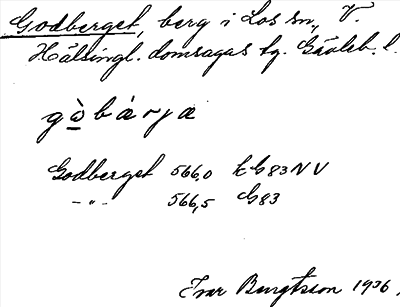 Godberget, berg i Los sn, V.
Hälsingl. domsagas tg. Gävleb. l.
gòbærjæ
Godberget 566,0 kG83NV
-"- 566,5 G83
Ivar Bengtsson 1936.